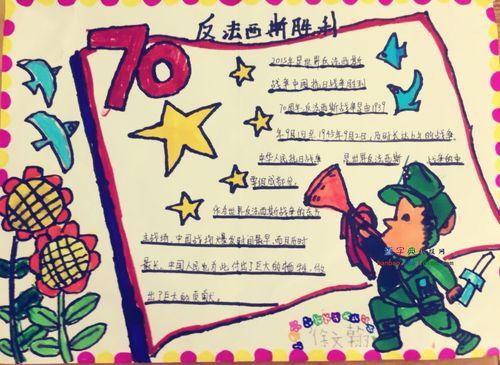 反法西斯胜利
70
2015年是世界反法西斯
战争中国抗日战争胜利
70周年.反法西斯战争是由1939
年9月1日至1945年9月2日,历时长达六年的战争.
中华人民抗日战争 是世界反法西斯 战争的重
要组成部分.
作为世界反法西斯战争的东方
主战场,中国战场爆发时间最早,而且历时
最长.中国人民也为此付出了巨大的牺牲,做
出了巨大的贡献.
徐文翰